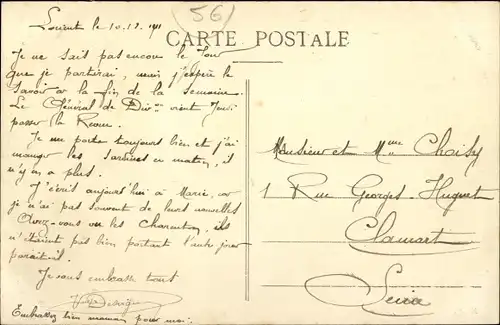 (56)
Lorient le 10.12.
CARTE POSTALE
Je ne sait pas encore le Jour
que je partirai, mais j'espère le
savoir à la fin de la semaine.
Le Général de Divon vient Jeudi
passer la Revue.
Je me porte toujours bien et j'ai
manger les sardines ce matin, il
n'y en a plus.
J'écris aujourd'hui à Marie, car
je n'ai pas souvent de leurs nouvelles
Avez-vous vu les Charenton, ils
n'étaient pas bien portant l'autre jour
paraît-il.
Je vous embrasse tous
Embrassez bien maman pour moi.
Monsieur et Mme Choisy
1 Rue Georges-Huguet
Clamart
Seine